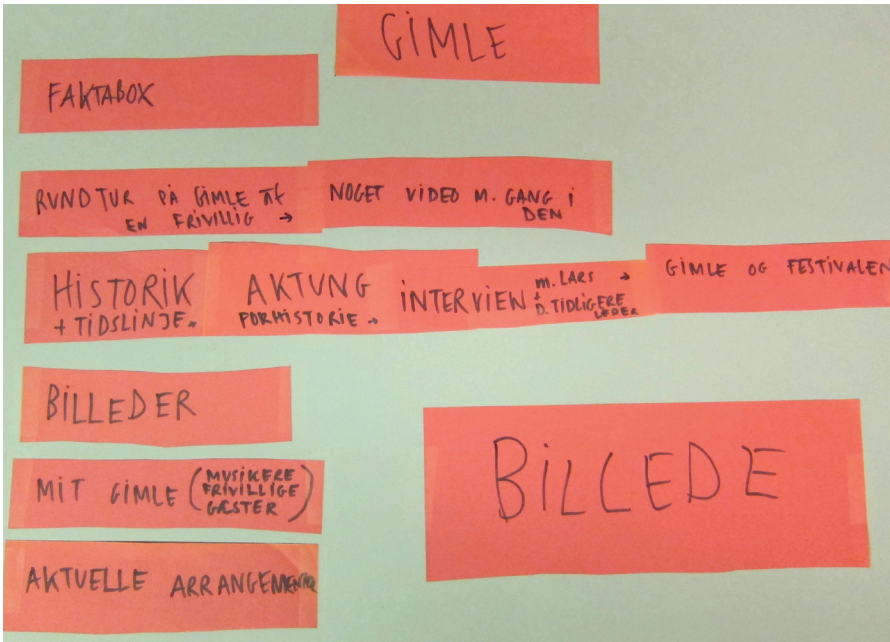 GIMLE
FAKTABOX
RUNDTUR PÅ GIMLE AF
EN FRIVILLIG →
NOGET VIDEO M. GANG I
DEN
HISTORIK
+ TIDSLINJE
AKTUNG
FORHISTORIE →
INTERVIEN
M. LARS →
+
D. TIDLIGERE
LEDER
GIMLE OG FESTIVALEN
BILLEDER
MIT GIMLE (MUSIKERE
FRIVILLIGE
GÆSTER)
AKTUELLE ARRANGEMENTER
BILLEDE